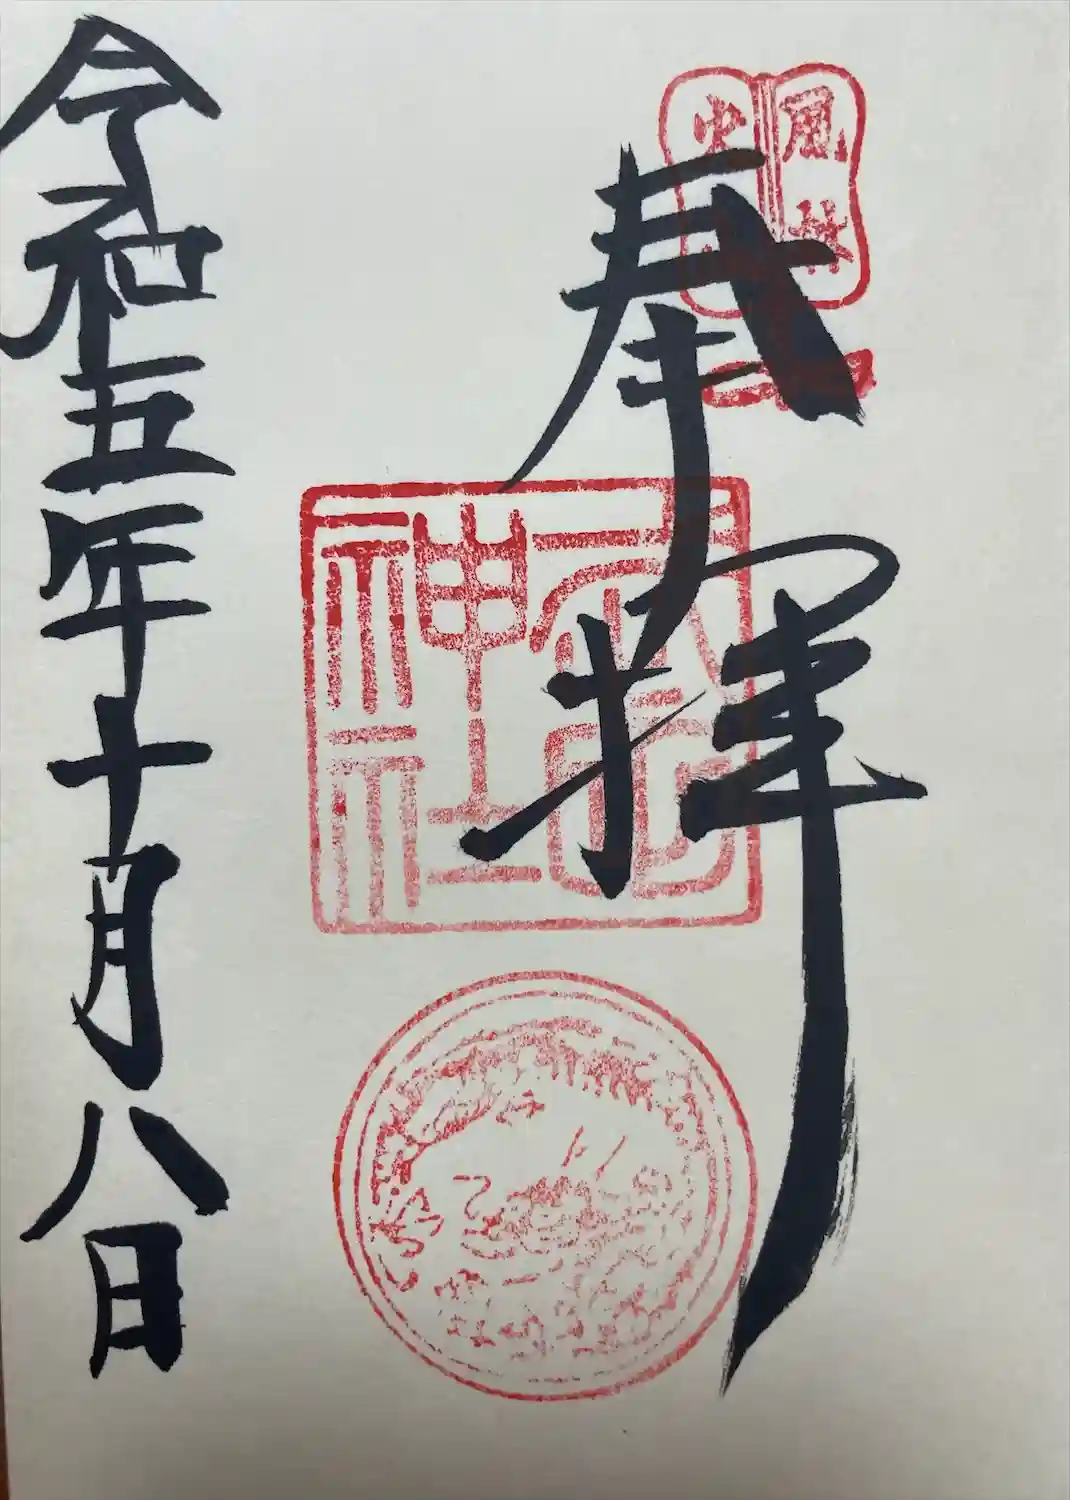 風林
火
奉拝
神社
令和五年十月八日